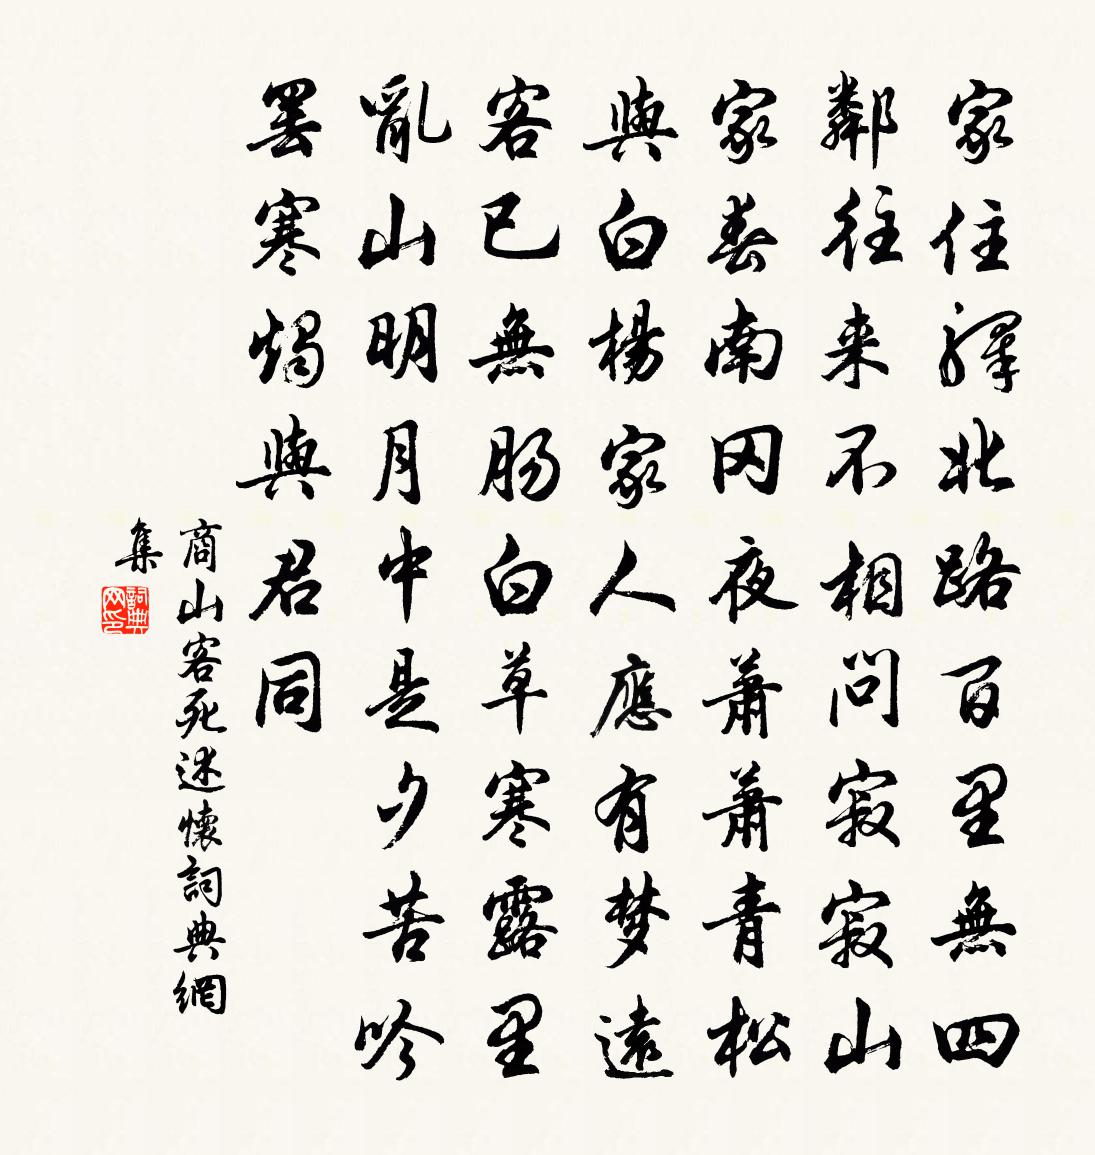 家住驛北路百里無四
鄰往来不相問寂寂山
家春南冈夜蕭蕭青松
與白楊家人應有梦遠
客已無肠白草寒露里
亂山明月中是夕苦吟
罢寒燭與君同
商山客死述懷詞典網
集
詞典网印